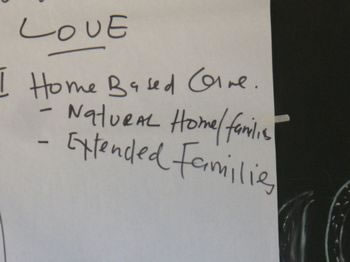 LOVE
I Home Based Care.
- NatURAL Home/families
- Extended Families